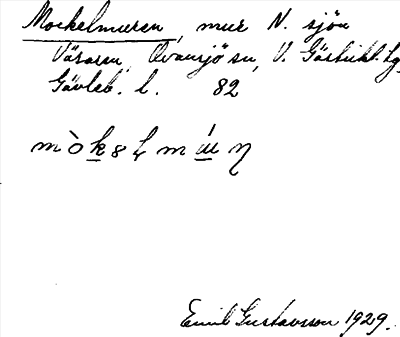 Mockelmuren, mur N. sjön
Våraren, Ovansjö sn, V. Gästrikl. tg
Gävleb. l. 82
mò̀k8ɬ mú̱ɳ
Emil Gustavsson 1929.